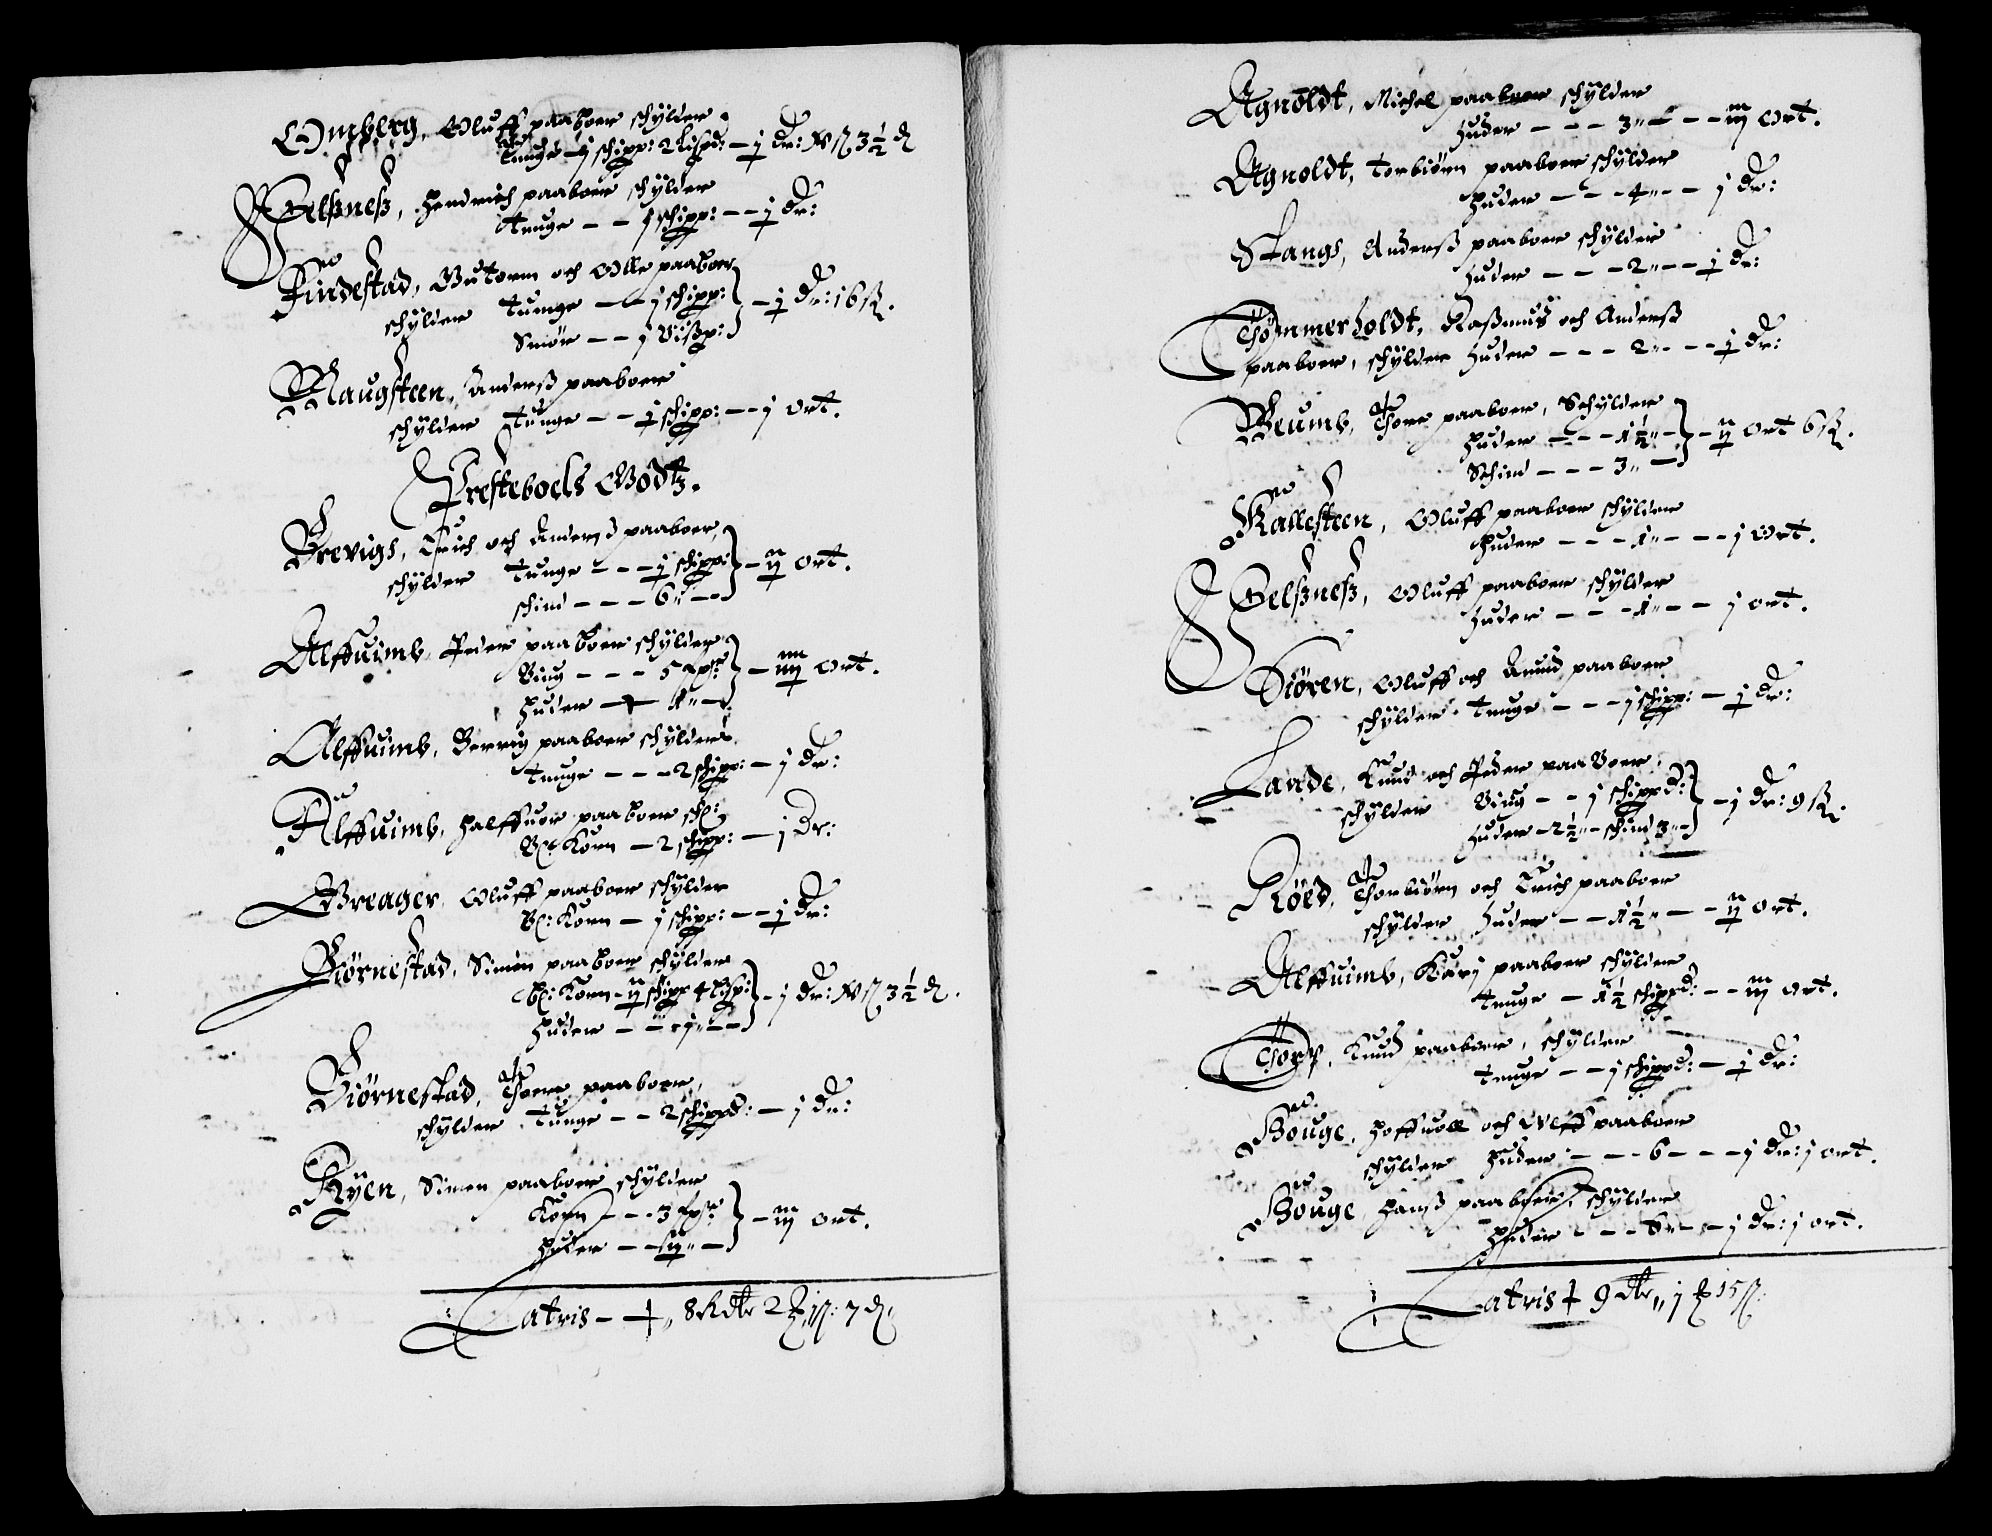 Omberg, Oluff paaboer schylder
Tunge – j schipp: 2 Lispd: – j Dr: 3½ d
Gelßneß, Hendrich paaboer schylder
Tunge – – j schipp: – – j Dr:
Findestad, Gutorm och Olle paaboer
schylder Tunge – – j schipp:
Smör – – j Lißp: – j Dr: 16 ß.
Maugsteen, Anderß paaboer
schylder Tunge – – j schipp: – – j ort.
Presteboels Godtz.
Brevigs, Erich och Anderß paaboer,
schylder Tunge – – – j schipp: – ij ort.
schind – – – 6 „ – –
Alffuimb, Peder paaboer schylder
Biug – – – 5 – iiij ort.
Huder – – 1 „ –
Alffuimb, paaboer schylder
Tunge – – – 2 schipp: – j Dr:
Alffuimb, Halffuor paaboer sch:
Bl: Korn – 2 schipp: – j Dr:
Breager, Oluff paaboer schylder
Bl: Korn – j schipp: – – j Dr:
Biörnestad, Simen paaboer schylder
Bl: Korn – ij schipp 4 – j Dr: 3½ d.
Huder – – – j „ – –
Biörnestad, Thore paaboer,
schylder Tunge – – 2 schippd: – j Dr:
Ryen, Simen paaboer schylder
Korn – – 3 – iij ort.
Huder – – ij „ –
Latris – – 8 Rdlr 2 1 ß: 7 d.
Agnoldt, Michel paaboer schylder
Huder – – – 3 „ – – – iij ort.
Agnoldt, Torbiörn paaboer schylder
Huder – – – 4 „ – – j Dr:
Stangs, Anderß paaboer schylder
Huder – – – 2 „ – – j Dr:
Thömmerholdt, Raßmus och Anderß
paaboer, schylder Huder – – – 2 „ – – – j Dr:
Beumb, Thore paaboer, Schylder
Huder – – – 1½ „ – – ij ort 6 ß.
Schind – – – 3 „ –
Kallesteen, Oluff paaboer schylder
Huder – – – 1 „ – – – j ort.
Gelßneß, Oluff paaboer schylder
Huder – – – 1 „ – – j ort.
Siören, Oluff och Amund paaboer
schylder Tunge – – – j schipp: – j Dr:
Lande, Knud och Peder paaboer
schylder Biug – – j schippd: – j Dr: 9 ß.
Huder – 2½ „ – schind 3 „ –
Röed, Thorbiörn och Erich paaboer
schylder Huder – – 1½ „ – – ij ort.
Alffuimb, Karj paaboer schylder
Tunge – 1½ schippd: – – iij ort.
Thorp, Knud paaboer, schylder
Tunge – – j schippd: – j Dr:
Bouge, Hoffuoll och Oleff paaboer
schylder Huder – – – 6 – – – j Dr: j ort.
Bouge, Hanß paaboer, schylder
Huder – – – 6 „ – – j Dr: j ort.
Latris 9 dlr „ j 15 ß: